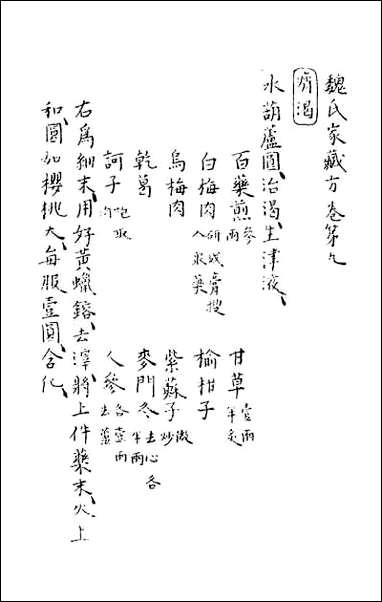 魏氏家藏方卷第九
痟渴
水葫蘆圓治渴生津液
百藥煎叁兩 甘草壹兩半炙
白梅肉研成膏搜入衆藥 榆柑子
烏梅肉 紫蘇子微炒
乾葛 麥門冬去心各半兩
訶子炮取肉 人參去蘆各壹兩
右爲細末用好黃蠟鎔去滓將上件藥末火上
和圓如櫻桃大每服壹圓含化